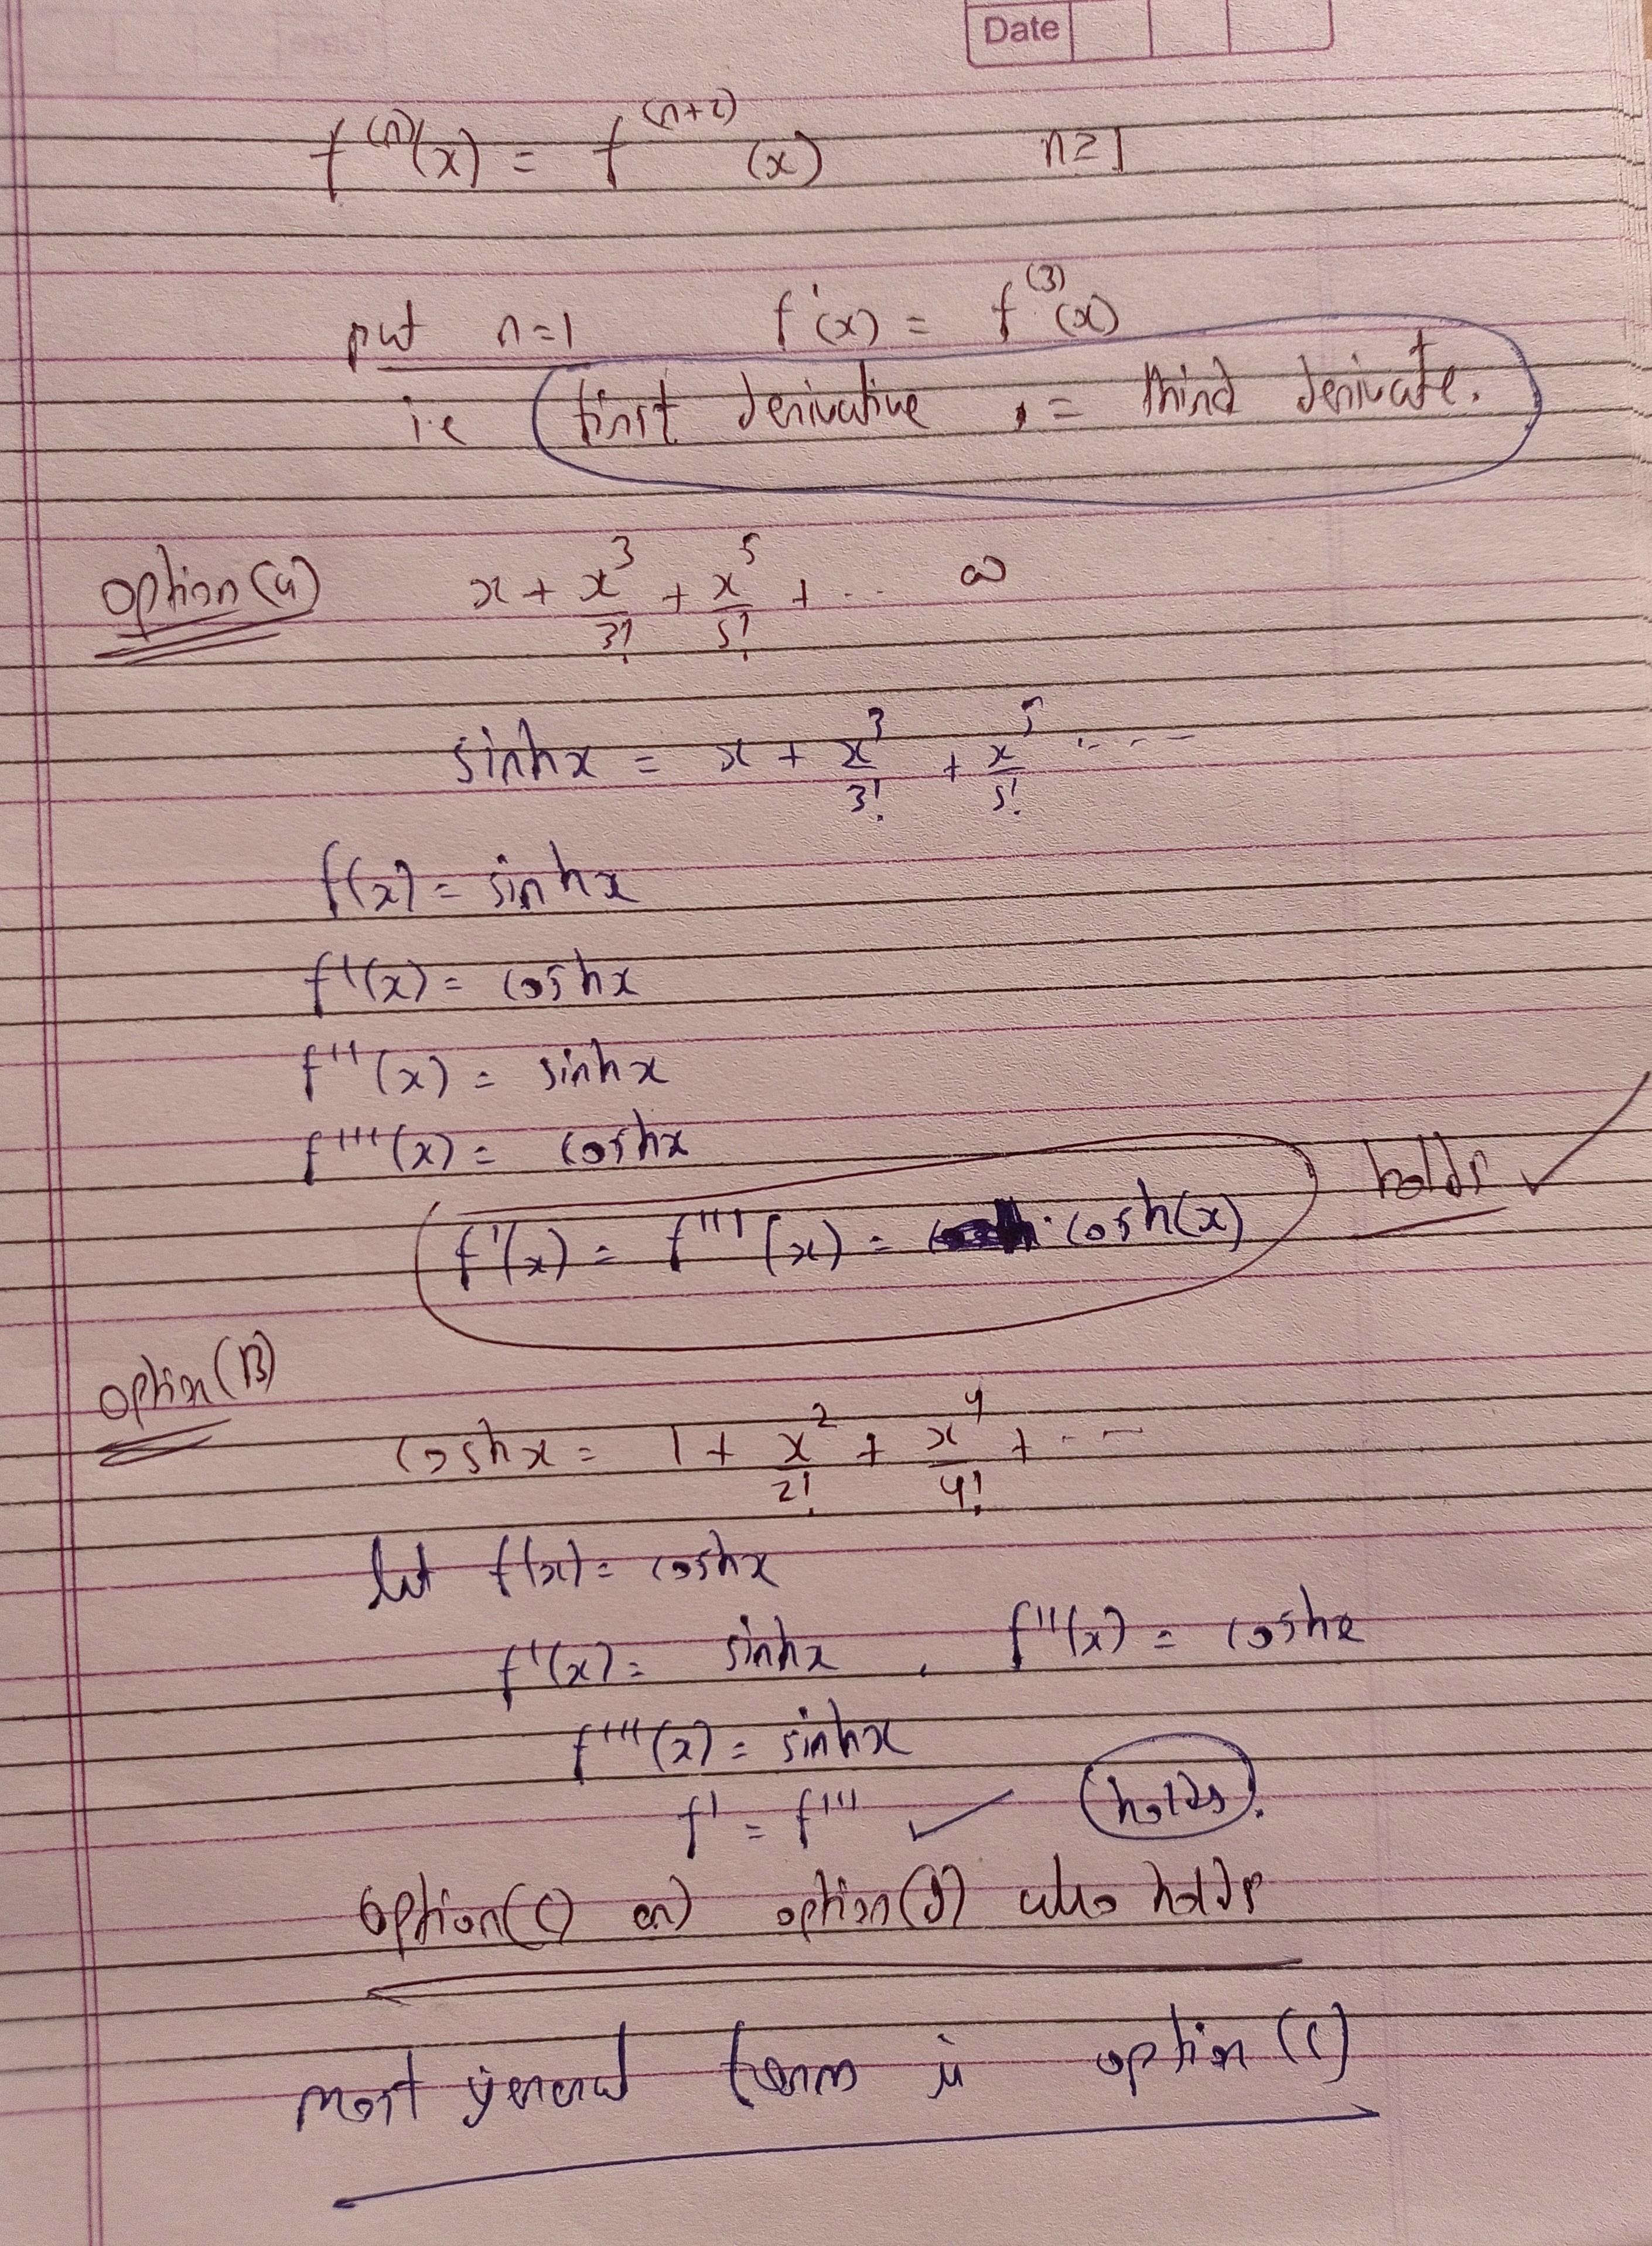 Date
f^(n)(x) = f^(n+2)(x) n ≥ 1
put n=1 f'(x) = f^(3)(x)
i.e first derivative , = third derivate.
option(a) x + x^3/3! + x^5/5! + ... ∞
sinhx = x + x^3/3! + x^5/5! ....
f(x) = sinhx
f'(x) = coshx
f''(x) = sinhx
f'''(x) = coshx
f'(x) = f'''(x) = cosh(x) holds ✓
option(B)
coshx = 1 + x^2/2! + x^4/4! + ...
let f(x) = coshx
f'(x) = sinhx , f''(x) = coshx
f'''(x) = sinhx
f' = f''' ✓ holds.
option(C) option(D) also holds
most general form is option (C)